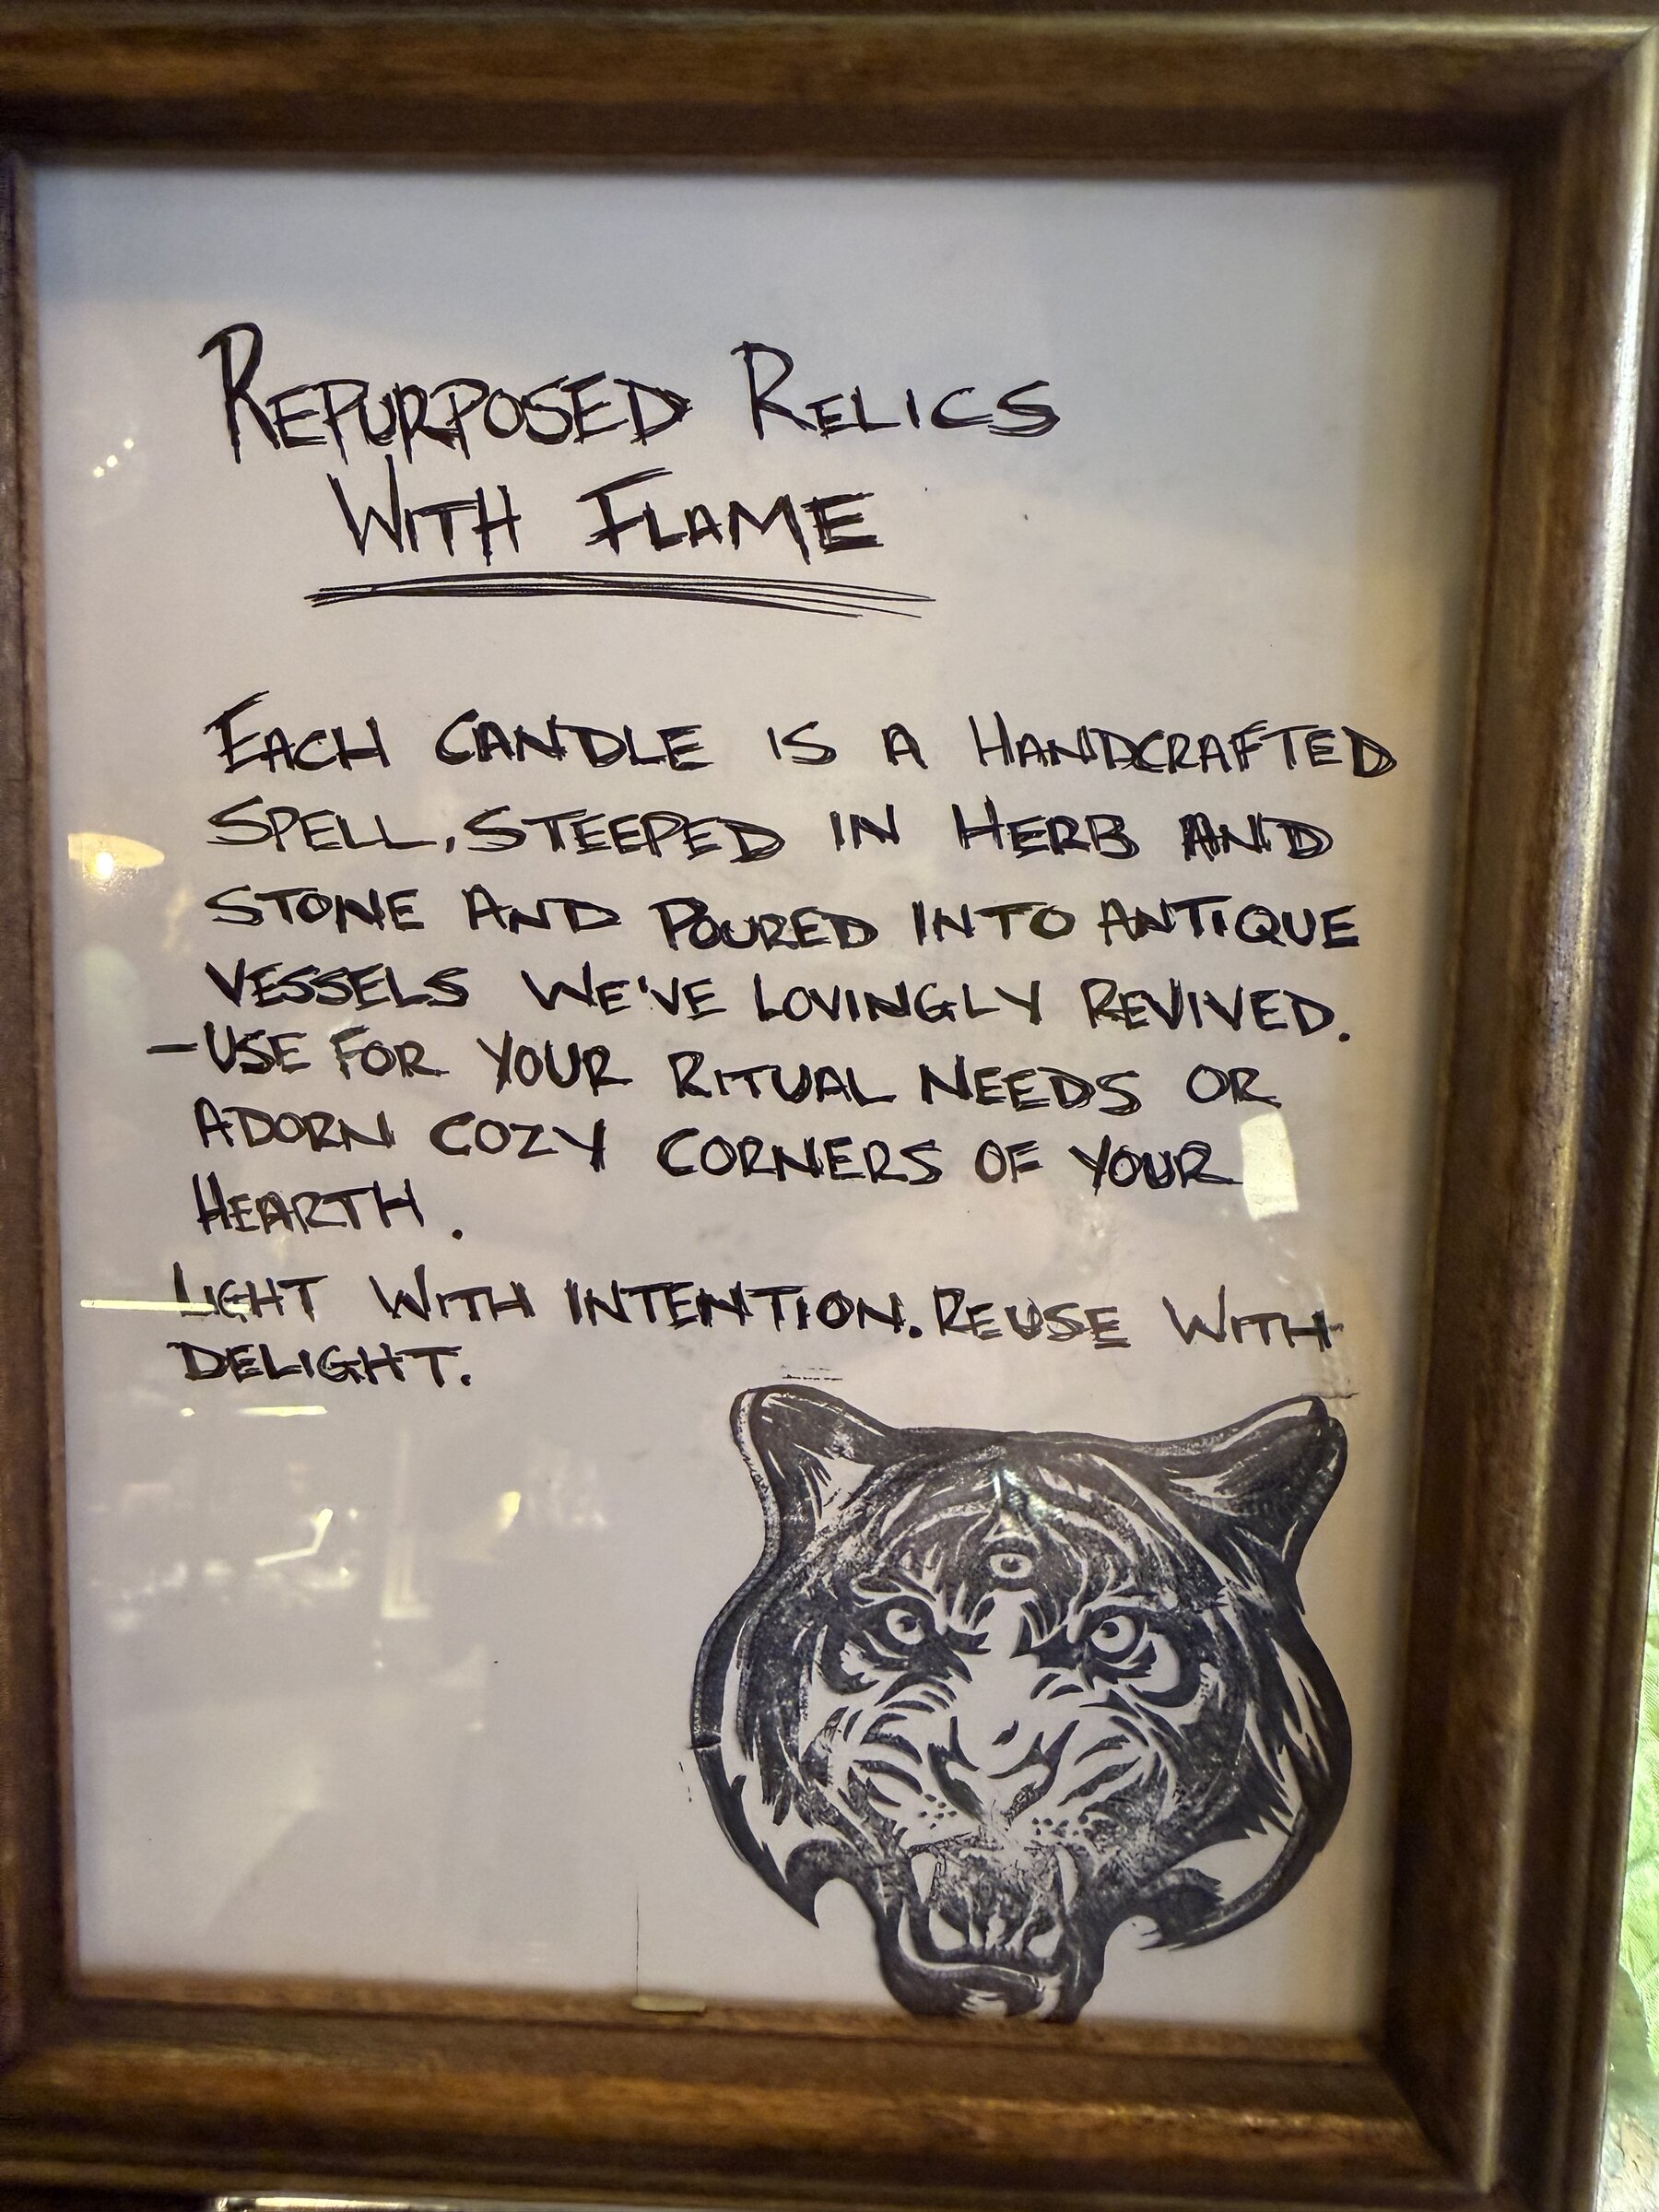 REPURPOSED RELICS
WITH FLAME
EACH CANDLE IS A HANDCRAFTED
SPELL, STEEPED IN HERB AND
STONE AND POURED INTO ANTIQUE
VESSELS WE'VE LOVINGLY REVIVED.
-USE FOR YOUR RITUAL NEEDS OR
ADORN COZY CORNERS OF YOUR
HEARTH.
LIGHT WITH INTENTION. REUSE WITH
DELIGHT.